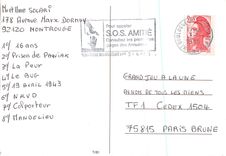 Melle SOLARI
178 Avenue Marx Dormoy
92120 MONTROUGE
1°/ 16 ans
2°/ Prison de Pawiak
3°/ La Peur
4°/ Le BUG
5°/ 19 avril 1943
6°/ NKVD
7°/ Colporteur
8°/ MANDELIEU
Pour appeler
S.O.S. AMITIÉ
Consultez les premières
pages des Annuaires
GRAND JEU A LA UNE
AU NOM DE TOUS LES MIENS
TF1 CEDEX 1504
75815 PARIS BRUNE